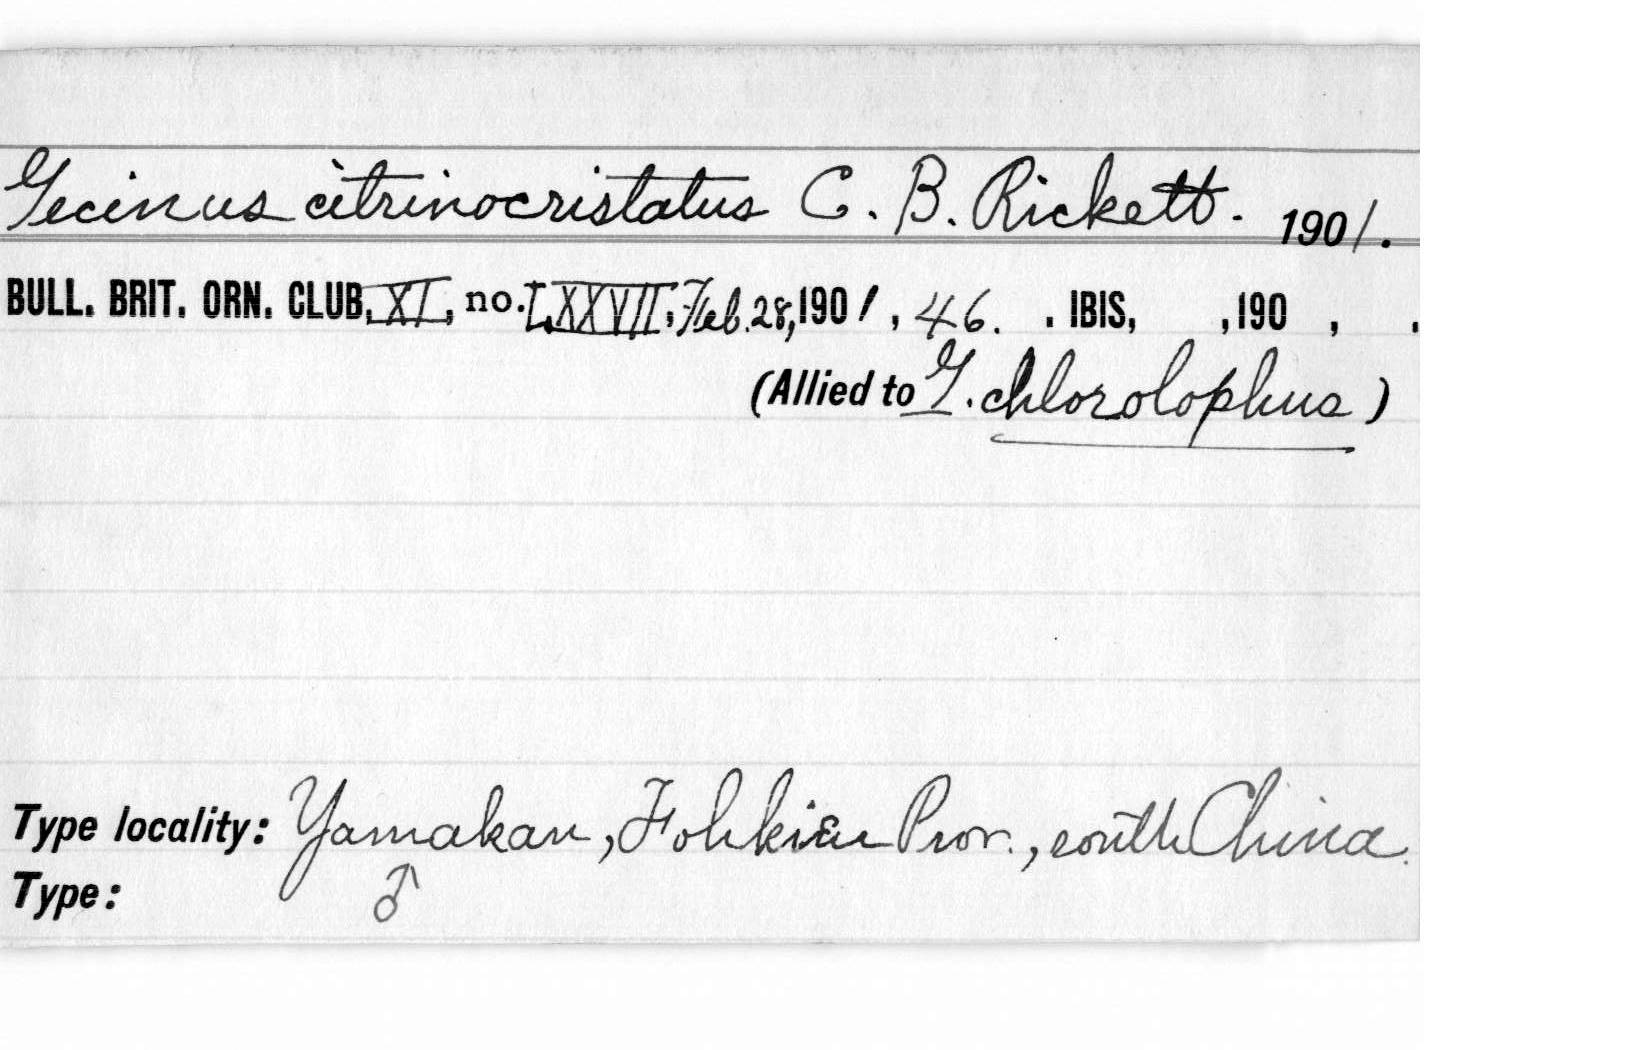 Gecinus citrinocristatus C. B. Rickett. 1901.
BULL. BRIT. ORN. CLUB, XI, no. LXXVII, Feb. 28, 1901, 46. . IBIS, , 190 , .
(Allied to G. chlorolophus)
Type locality: Yamakan, Fohkien Prov., south China.
Type: ♂